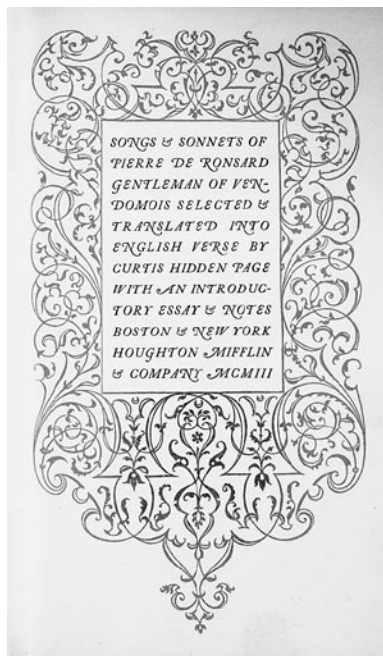 SONGS & SONNETS OF
PIERRE DE RONSARD
GENTLEMAN OF VEN-
DOMOIS SELECTED &
TRANSLATED INTO
ENGLISH VERSE BY
CURTIS HIDDEN PAGE
WITH AN INTRODUC-
TORY ESSAY & NOTES
BOSTON & NEW YORK
HOUGHTON MIFFLIN
& COMPANY MCMIII